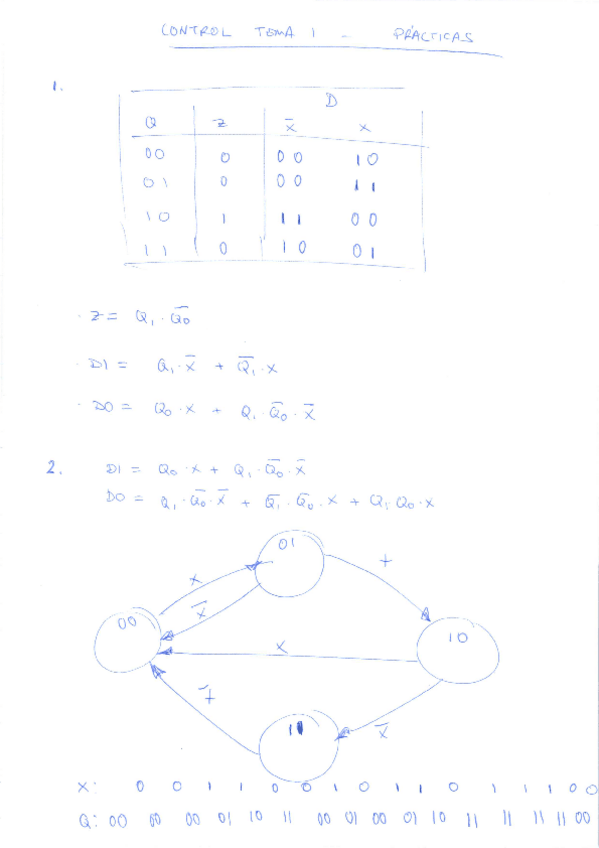 CONTROL TEMA 1 - PRÁCTICAS
1.
D
Q Z x̅ x
00 0 00 10
01 0 00 11
10 1 11 00
11 0 10 01
· Z = Q₁ · Q̅₀
· D1 = Q₁ · x̅ + Q̅₁ · x
· D0 = Q₀ · x + Q₁ · Q̅₀ · x̅
2. D1 = Q₀ · x + Q₁ · Q̅₀ · x̅
D0 = Q₁ · Q̅₀ · x̅ + Q̅₁ · Q̅₀ · x + Q₁ Q₀ · x
01
x
x
x̅
00
10
x
x̅
11
x̅
X: 0 0 1 1 0 0 1 0 1 1 0 1 1 1 0 0
Q: 00 00 00 01 10 11 00 01 00 01 10 11 11 11 11 00